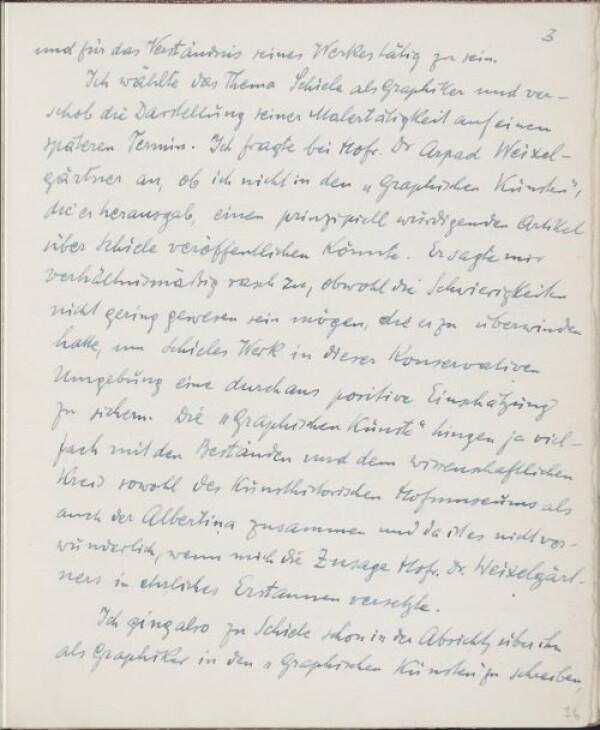 3
und für das Verständnis seines Werkes tätig zu sein.
Ich wählte das Thema Schiele als Graphiker und ver-
schob die Darstellung seiner Malertätigkeit auf einen
späteren Termin. Ich fragte bei Hofr. Dr Arpad Weixel-
gärtner an, ob ich nicht in den „Graphischen Künsten",
die er herausgab, einen prinzipiell würdigenden Artikel
über Schiele veröffentlichen könnte. Er sagte mir
verhältnismäßig rasch zu, obwohl die Schwierigkeiten
nicht gering gewesen sein mögen, die er zu überwinden
hatte, um Schieles Werk in dieser konservativen
Umgebung eine durchaus positive Einschätzung
zu sichern. Die „Graphischen Künste" hingen ja viel-
fach mit den Beständen und dem wissenschaftlichen
Kreis sowohl des Kunsthistorischen Hofmuseums als
auch der Albertina zusammen und da ist es nicht ver-
wunderlich, wenn mich die Zusage Hofr. Dr. Weixelgärt-
ners in ehrliches Erstaunen versetzte.
Ich ging also zu Schiele schon in der Absicht, über ihn
als Graphiker in den „Graphischen Künsten" zu schreiben,
36